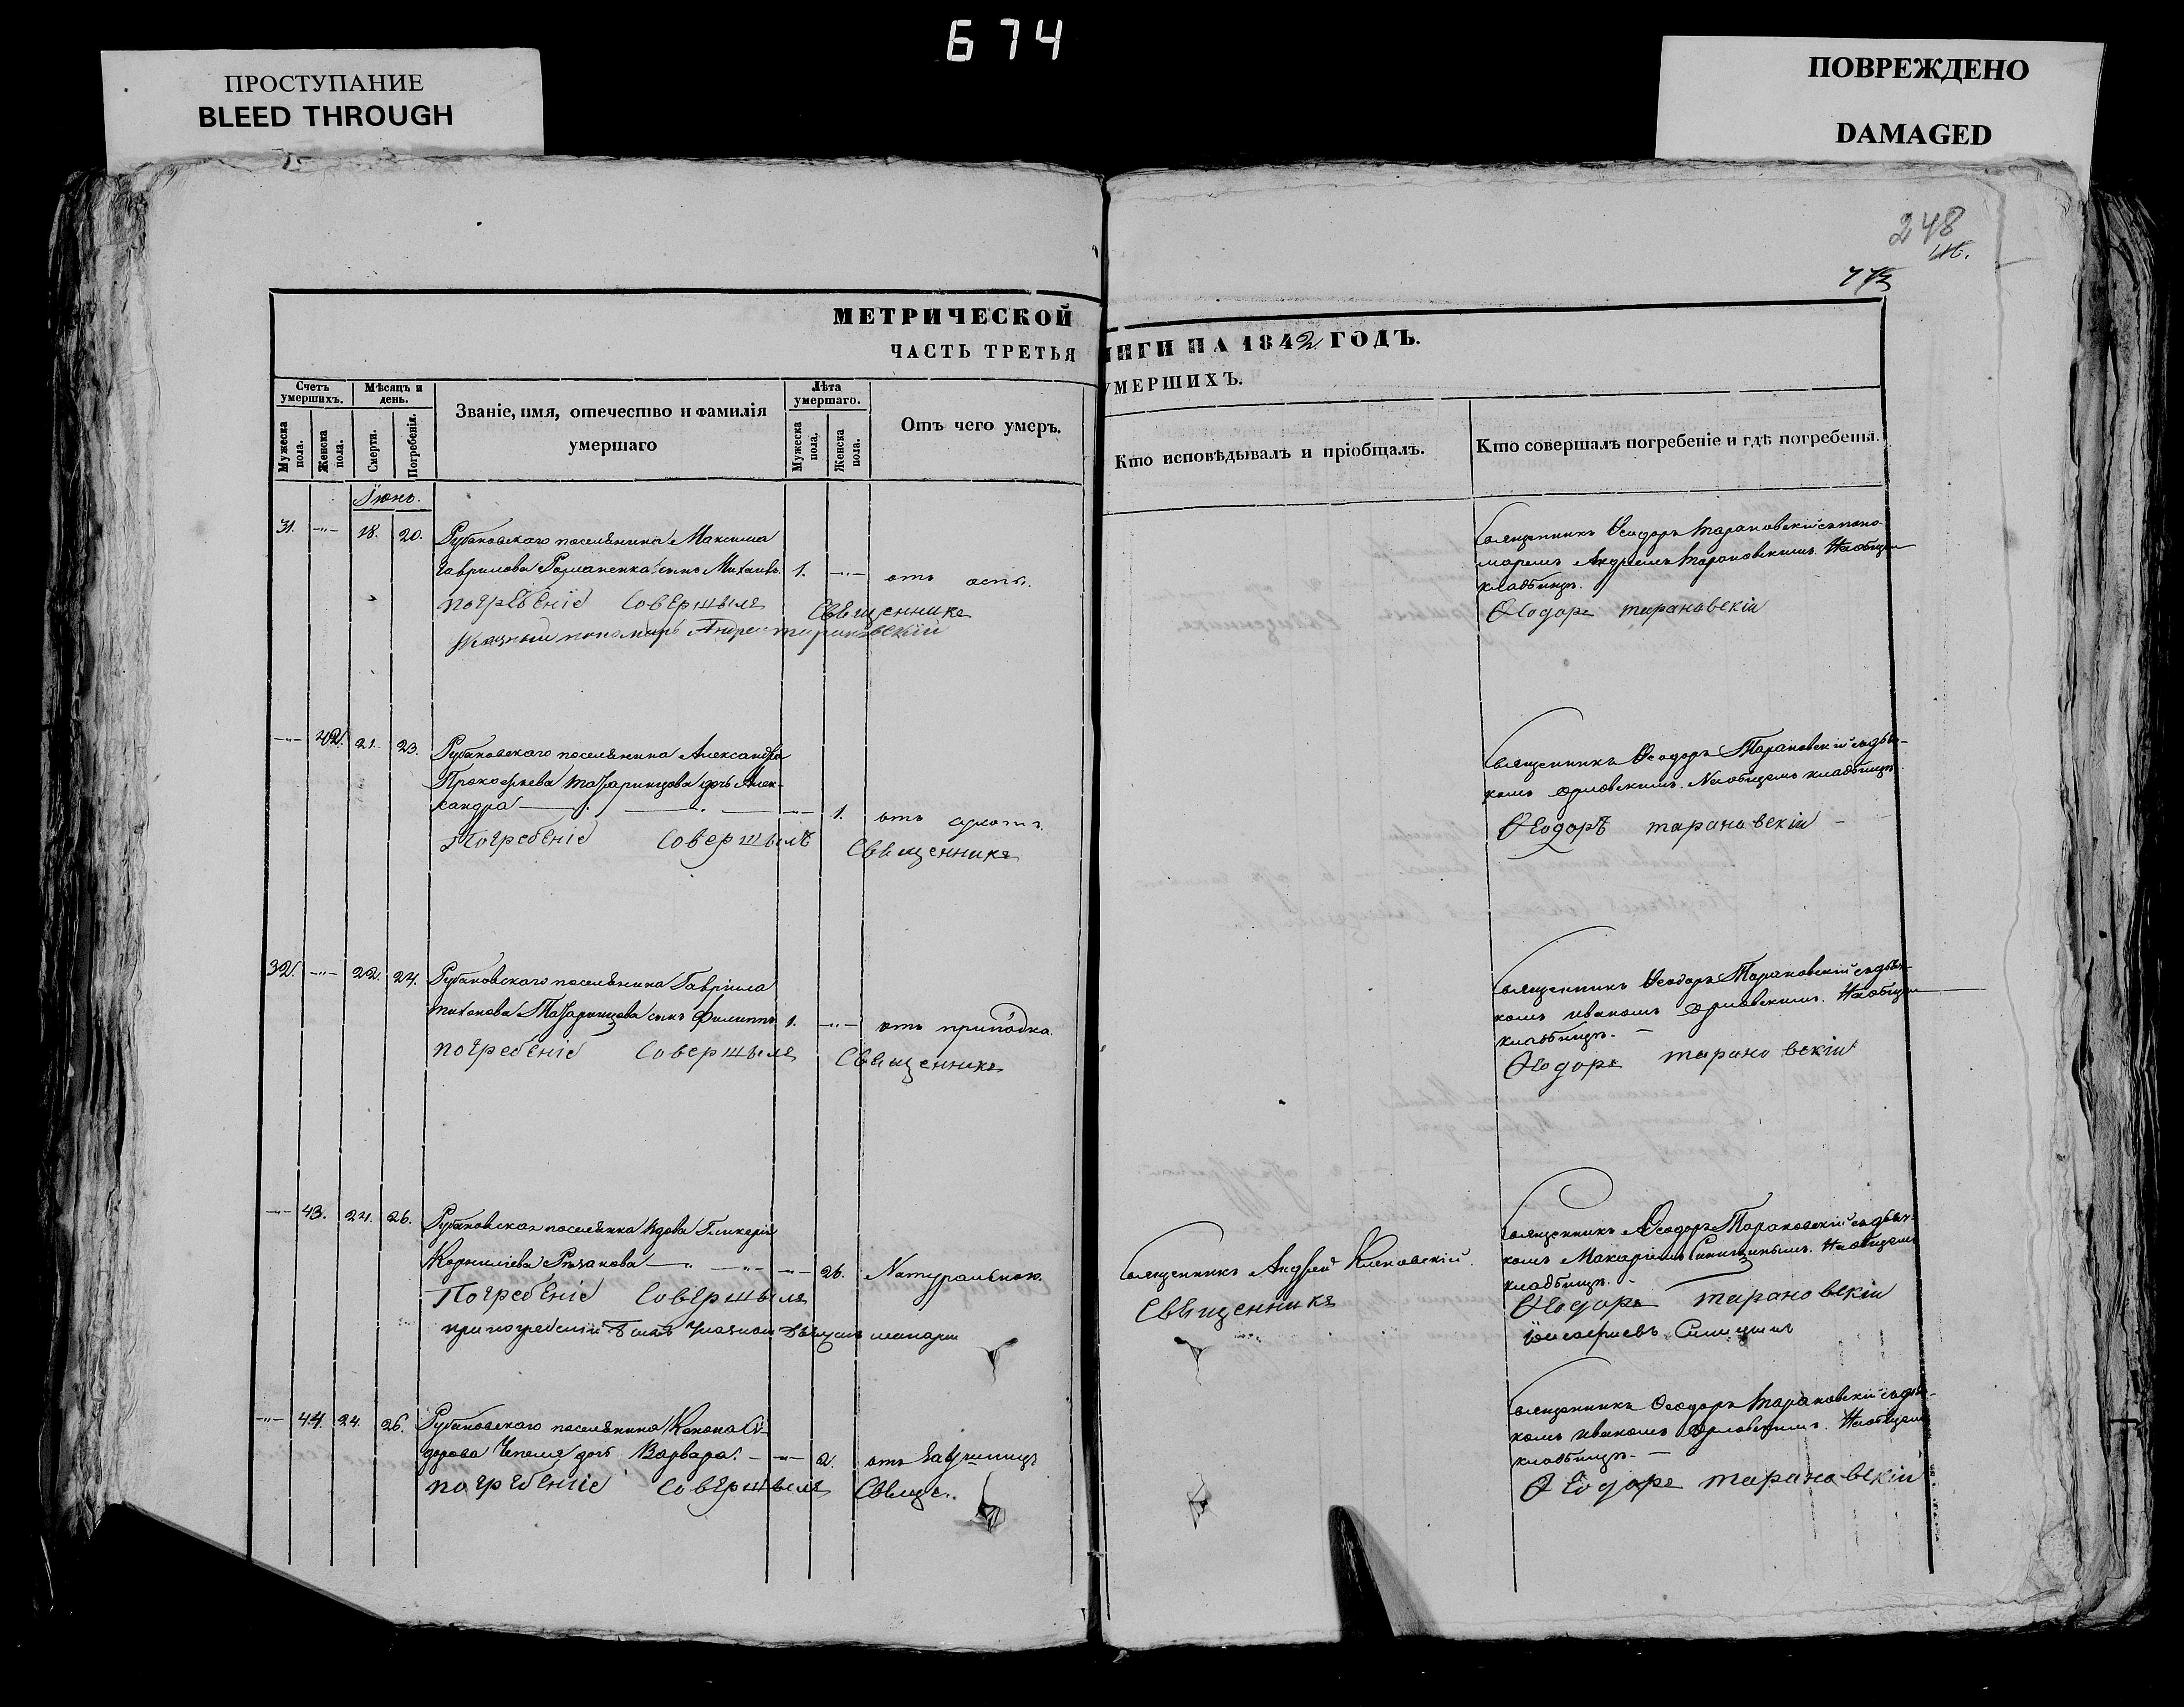 674
ПРОСТУПАНИЕ
BLEED THROUGH
ПОВРЕЖДЕНО
DAMAGED
248
МЕТРИЧЕСКОЙ
ЧАСТЬ ТРЕТЬЯ
Счетъ умершихъ.
Мужеска пола.
Женска пола.
Мѣсяцъ и день.
Смерти.
Погребенія.
Званіе, имя, отечество и фамилія
умершаго
Лѣта умершаго.
Мужеска пола.
Женска пола.
Отъ чего умеръ.
ИГИ НА 1842 ГОДЪ.
УМЕРШИХЪ.
Кто исповѣдывалъ и пріобщалъ.
Кто совершалъ погребеніе и гдѣ погребены.
Іюнь.
31. -"- 18. 20. Рубановскаго поселянина Максима
Гаврилова Романенка сынъ Михаилъ. 1. -"- отъ оспы.
погребеніе совершылъ Свещенникъ
пономарь Андрей тарановскій
Священникъ Ѳеодоръ Тарановскій съ поно-
маремъ Андреемъ Тарановскимъ. На общем
кладбищѣ.
Ѳеодоръ тарановскій
-"- 42. 21. 23. Рубановскаго поселянина Александра
Прокофьева дочь Алек-
сандра -"- 1. отъ
Погребеніе совершылъ Свещенникъ
Священникъ Ѳеодоръ Тарановскій съ дьяч-
комъ Орловскимъ. На общемъ кладбищѣ.
Ѳеодоръ тарановскій
32. -"- 22. 24. Рубановскаго поселянина Гавріила
Тихонова сынъ Филиппъ 1. -"- отъ припадка.
погребеніе совершылъ Свещенникъ
Священникъ Ѳеодоръ Тарановскій съ дьяч-
комъ Иваномъ Орловскимъ. На общем
кладбищѣ.
Ѳеодоръ тарановскій
-"- 43. 24. 26. Рубановская поселянка вдова Гликерія
Корниліева Рязанова -"- 26. Натуральною.
Погребеніе совершылъ
при погребеніи былъ
Священникъ Андрей Кленовскій.
Свещенникъ
Священникъ Ѳеодоръ Тарановскій съ дьяч-
комъ Макаріемъ Синицинымъ. На общемъ
кладбищѣ.
Ѳеодоръ тарановскій
-"- 44. 24. 26. Рубановскаго поселянина Конона Си-
дорова дочь Варвара. -"- 2. отъ
погребеніе совершылъ Свеще.
Священникъ Ѳеодоръ Тарановскій съ дьяч-
комъ Иваномъ Орловскимъ. На общемъ
кладбищѣ.
Ѳеодоръ тарановскій